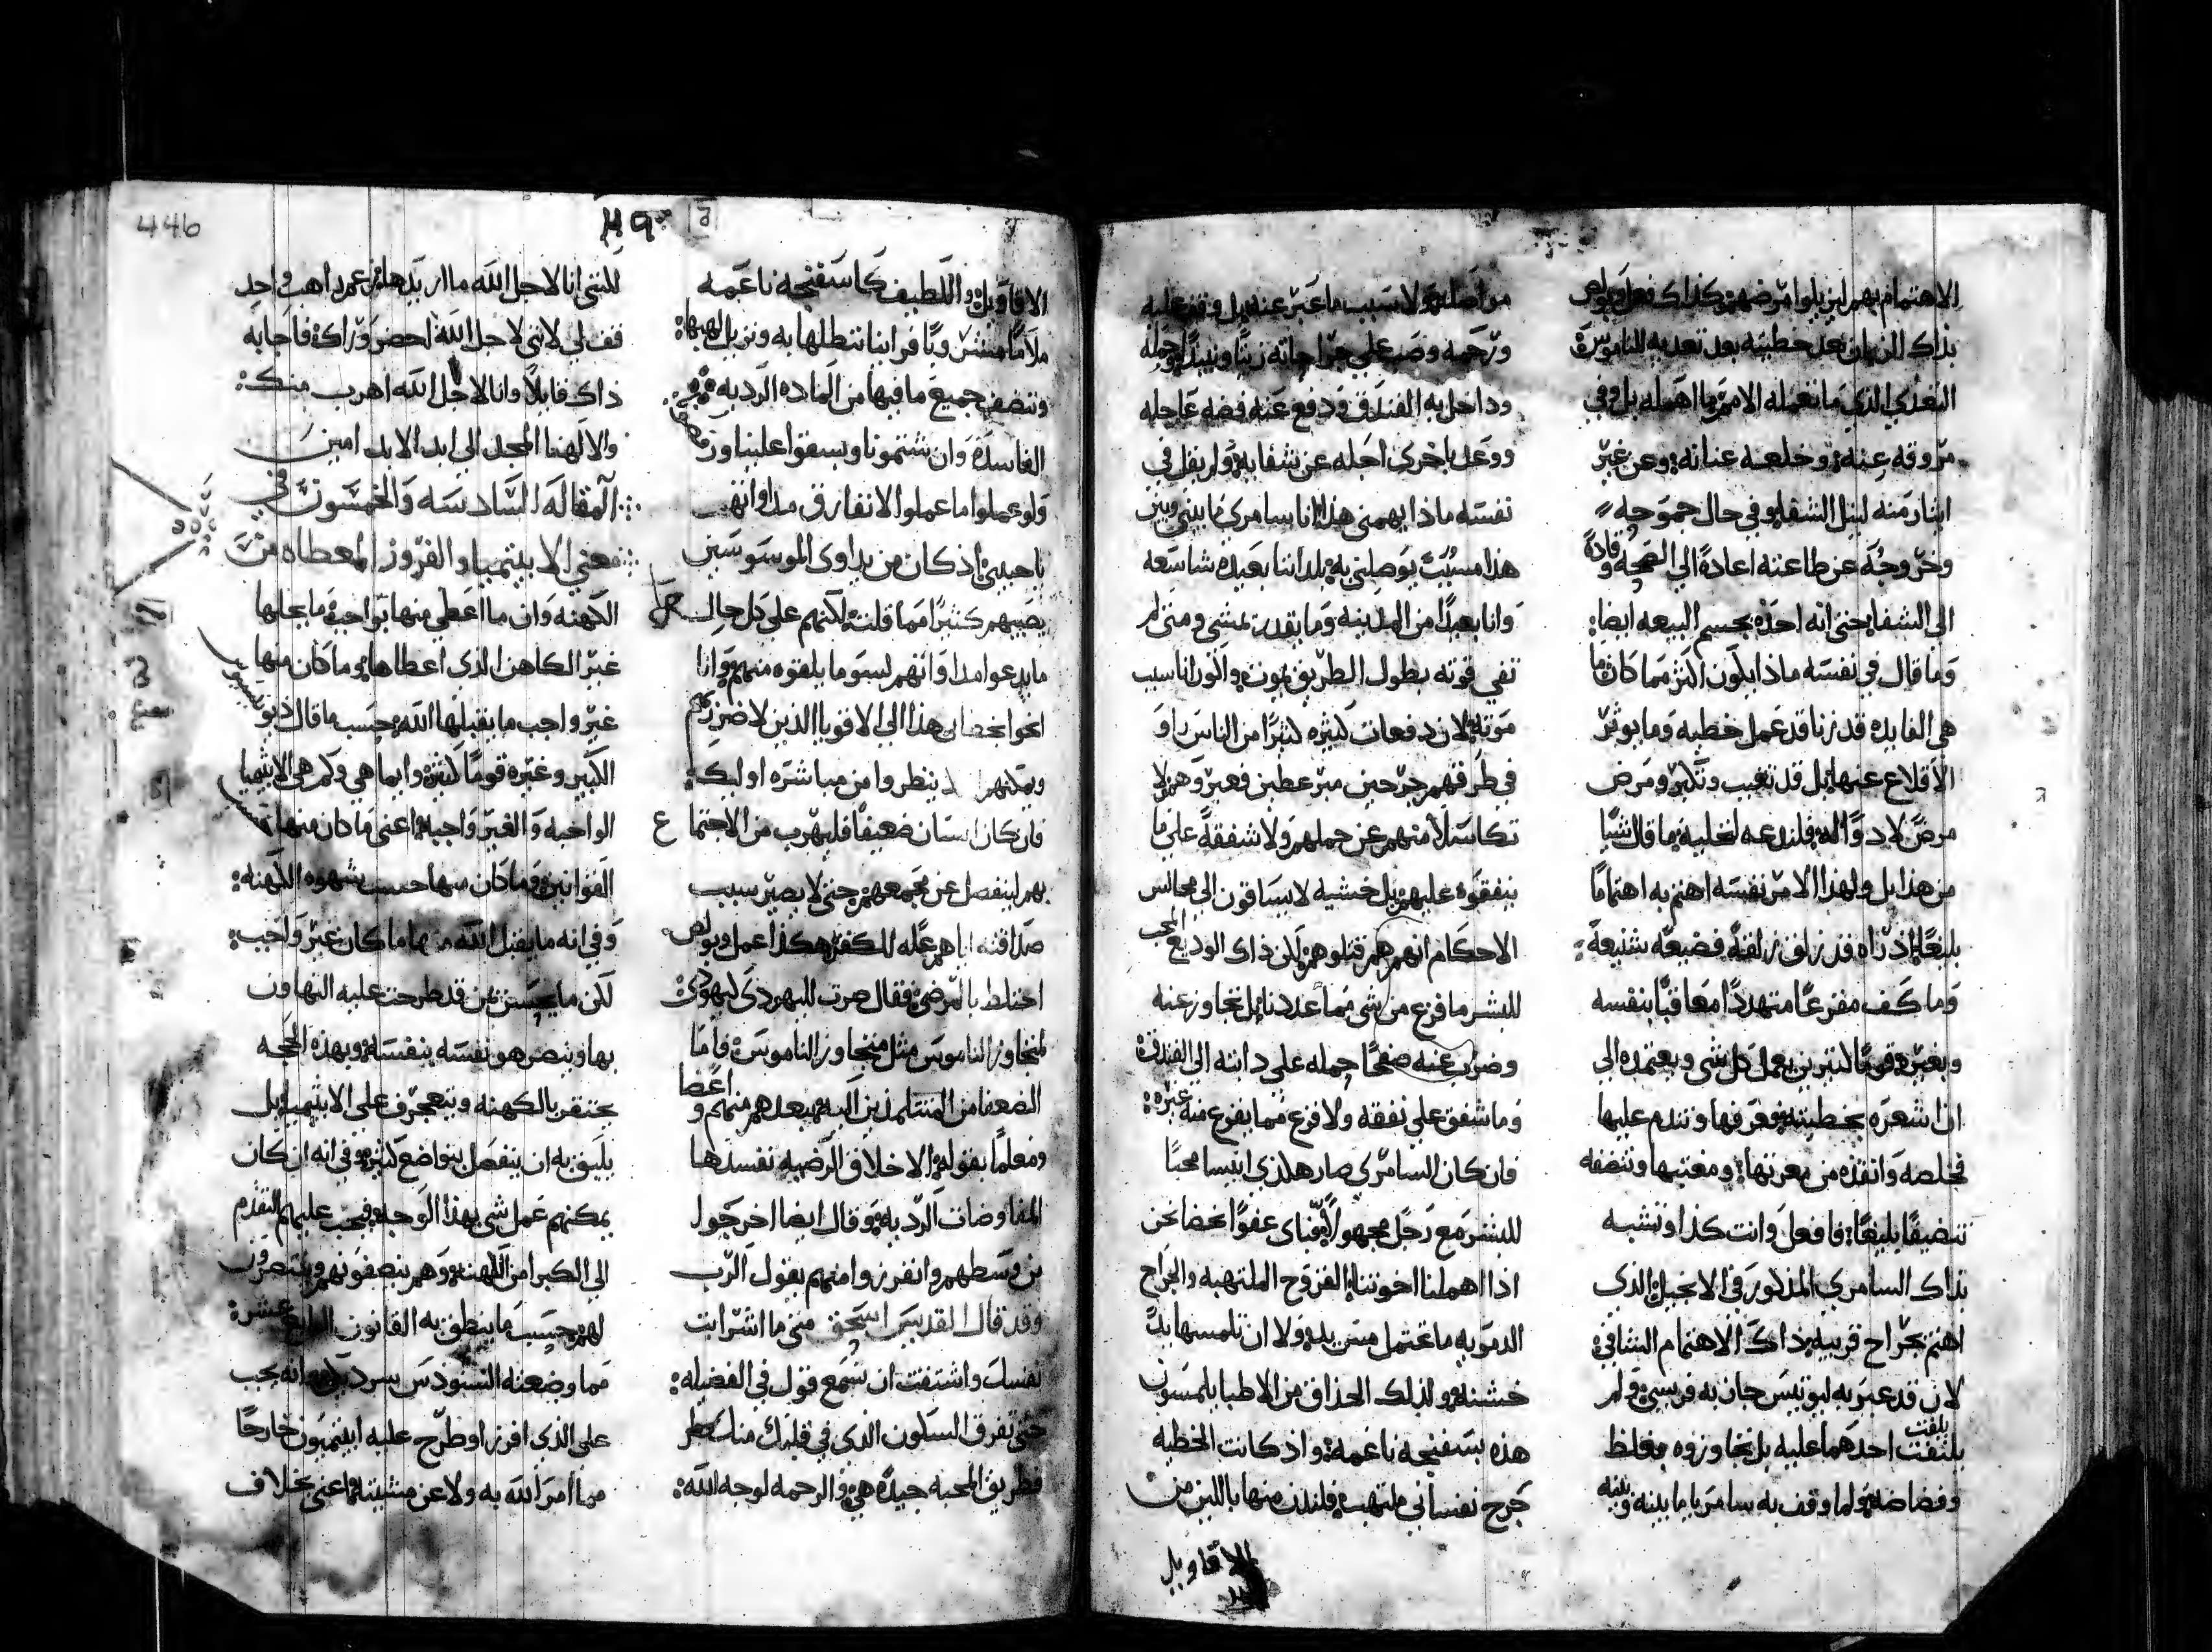 الاهتمام بهم لين بلوا مرضهم كذاك فعل بولص
بذاك الزاني بعد خطيته بعد تعديه الناموس
التعدي الذي ما تعمله الامم ما اهمله بل وفي
مروقه عنه وخلعه عنانه وعن غير
ايثار منه لنيل الشفا وفي حال جموحه
وخروجه عن طاعته اعادة الي الصحه وقاده
الى الشفا حتى انه احده بجسم البيعه ايضا
وما قال في نفسه ماذا يكون اكثر مما كان ما
هي الفايده قد زنا قد عمل خطيه وما يوثر
الاقلاع عنها بل قد تغيب وتكبر ومرض
مرض لا دوا له فلندعه لخليه ما قال شيا
من هذا بل ولهذا الامر نفسه اهتم به اهتماما
بليغا اذ راه قد زلق زلقه فضيعه شنيعه
وما كف مفزعا متهددا معاقبا بنفسه
وبغيره قوما كثيرين بعمل كل شي وبعتمده الي
ان اشعره بخطيته وعرفها وتندم عليها
فخلصه وانقذه من معرتها ومغتبها وتنضفه
تنضيفا بليغا فافعل وانت كذا وتشبه
بذاك السامري المذكور في الانجيل الذي
اهتم بجراح قريبه ذاك الاهتمام الشافي
لان قد عبر به ليوتيس جاز به فريسي ولم
يلتفت
يلتفت احدهما عليه بل تجاوزوه بغلظ
وفضاضه ولما وقف به سامريا ما بينه وبينه
مواصله ولا سبب ما عبر عنه بل وقف عليه
ورحمه وصب علي جراحاته زيتا ونبيدا وحمله
وداخل به الفندق ودفع عنه فضه عاجله
ووعد باخرى اجله عن شفايه ولم يقل في
نفسه ماذا يهمني هذا انا سامري ما بيني وبين
هذا مسبب يوصلني به بلداننا بعيده شاسعه
وانا بعيدا من المدينه وما يقدر يمشي ومتى لم
تفي قوته بطول الطريق يموت واكون انا سبب
موته لان دفعات كثيره كثيرا من الناس راو
في طرقهم جرحين مبرعطين فعبروهم لا
تكاسلا منهم عن حملهم ولا شفقة علي ما
ينفقوه عليهم بل خشيه لا يساقون الي مجالس
الاحكام انهم هم قتلوهم لكن ذاك الوديع المحب
للبشر ما فزع من شي مما عددنا بل تجاوز عنه
وضرب عنه صفحا حمله على دابته الي الفندق
وما شفق على نفقه ولا فزع مما يفزع منه غيره
فان كان السامري صار هكذي انيسا محبا
للبشر مع رجل مجهولا فباي عفوا نحضا نحن
اذا اهملنا اخوتنا القروح الملتهبه والجراح
الدمويه ما تحتمل مس يد ولا ان تلمسها يدا
خشنه ولذلك الحذاق من الاطبا يلمسون
هذه بسفنجه ناعمه واذ كانت الخطيه
جرح نفساني ملتهب فلندن منها باللين من
الاقاويل
الاقاويل واللطيف كاسفنجه ناعمه
ملامسا مستويا فراينا تنطلها به ونزيل لهيبها
وتنضف جميع ما فيها من الماده الرديه
الفاسده وان شتمونا وبسقوا علينا
ولو عملوا ما عملوا لا نفارق مداواتهم
يا حبيبي اذ كان من يداوى الموسوسين
يصيبهم كثيرا مما قلت لكنهم على كل حال
ما يدعوا مداواتهم لسو ما يلقوه منهم وانا
انحوا بخطابي هذا الي الاقويا الذين لا ضرر لهم
ويمكنهم ينظروا من مباشره اوليك
فان كان انسان ضعيفا فليهرب من الاجتماع
بهم لينفصل عن مجمعهم حتى لا يصير سبب
صداقته اياهم عله للكفر هكذا عمل وبولص
اختلط بالمرضي فقال صرت لليهودي كيهودي
لمتجاوز الناموس مثل متجاوز الناموس فاما
الضعفا من المتتلمذين اليه يبعدهم منهم واعضا
ومعلما بقوله الاخلاق الرضيه تفسدها
المفاوضات الرديه وقال ايضا اخرجوا
من وسطهم وانفرزوا منهم يقول الرب
وقد قال القديس اسحق متى ما اثرانت
نفسك واشتقت ان تسمع قول في الفضيله
حتى تفرق السكون الذي في قلبك منك
فطريق المحبه جيده هي والرحمه لوجه الله
446
للتني انا لاجل الله ما اريدها من عمر راهب واحد
قف لي لانني لاجل الله احضر وراك فاجابه
ذاك قايلا وانا لاجل الله اهرب منك
والالهنا المجد الي ابد الابد امين
المقاله السادسه والخمسون في
معني الابيتيميا والفروز المعطاه من
الكهنه وان ما اعطي منها بواجب ما يحلها
غير الكاهن الذي اعطاها وما كان منها
غير واجب ما يقبلها الله حسب ما قال ديونيسيوس
الكبير وغيره قوما كثيره وايما هي وكم هي الابيتيميا
الواجبه والغير واجبه اعني ما كان منها
القوانين وما كان منها حسب شهوه الكهنه
وفي انه ما يقبل الله منها ما كان غير واجب
لكن ما يحسن بمن قد طرحت عليه التهاون
بها وينصر هو نفسه بنفسه وبهذه الحجه
يحتقر بالكهنه ويتعجرف على الابيتيميا بل
يليق به ان ينفصل بتواضع كثير وفي انه ان كان
يمكنهم عمل شي بهذا الوجه فيجب عليهم التقدم
الي الكبرا من الكهنه وهم ينصفونهم وينتصرون
لهم حسب ما ينطق به القانون الرابع عشره
مما وضعته السنودس بسرديكيه انه يجب
على الذي افرز او طرح عليه ابيتيميون خارجا
مما امر الله به ولا عن مشيته اعني بخلاف